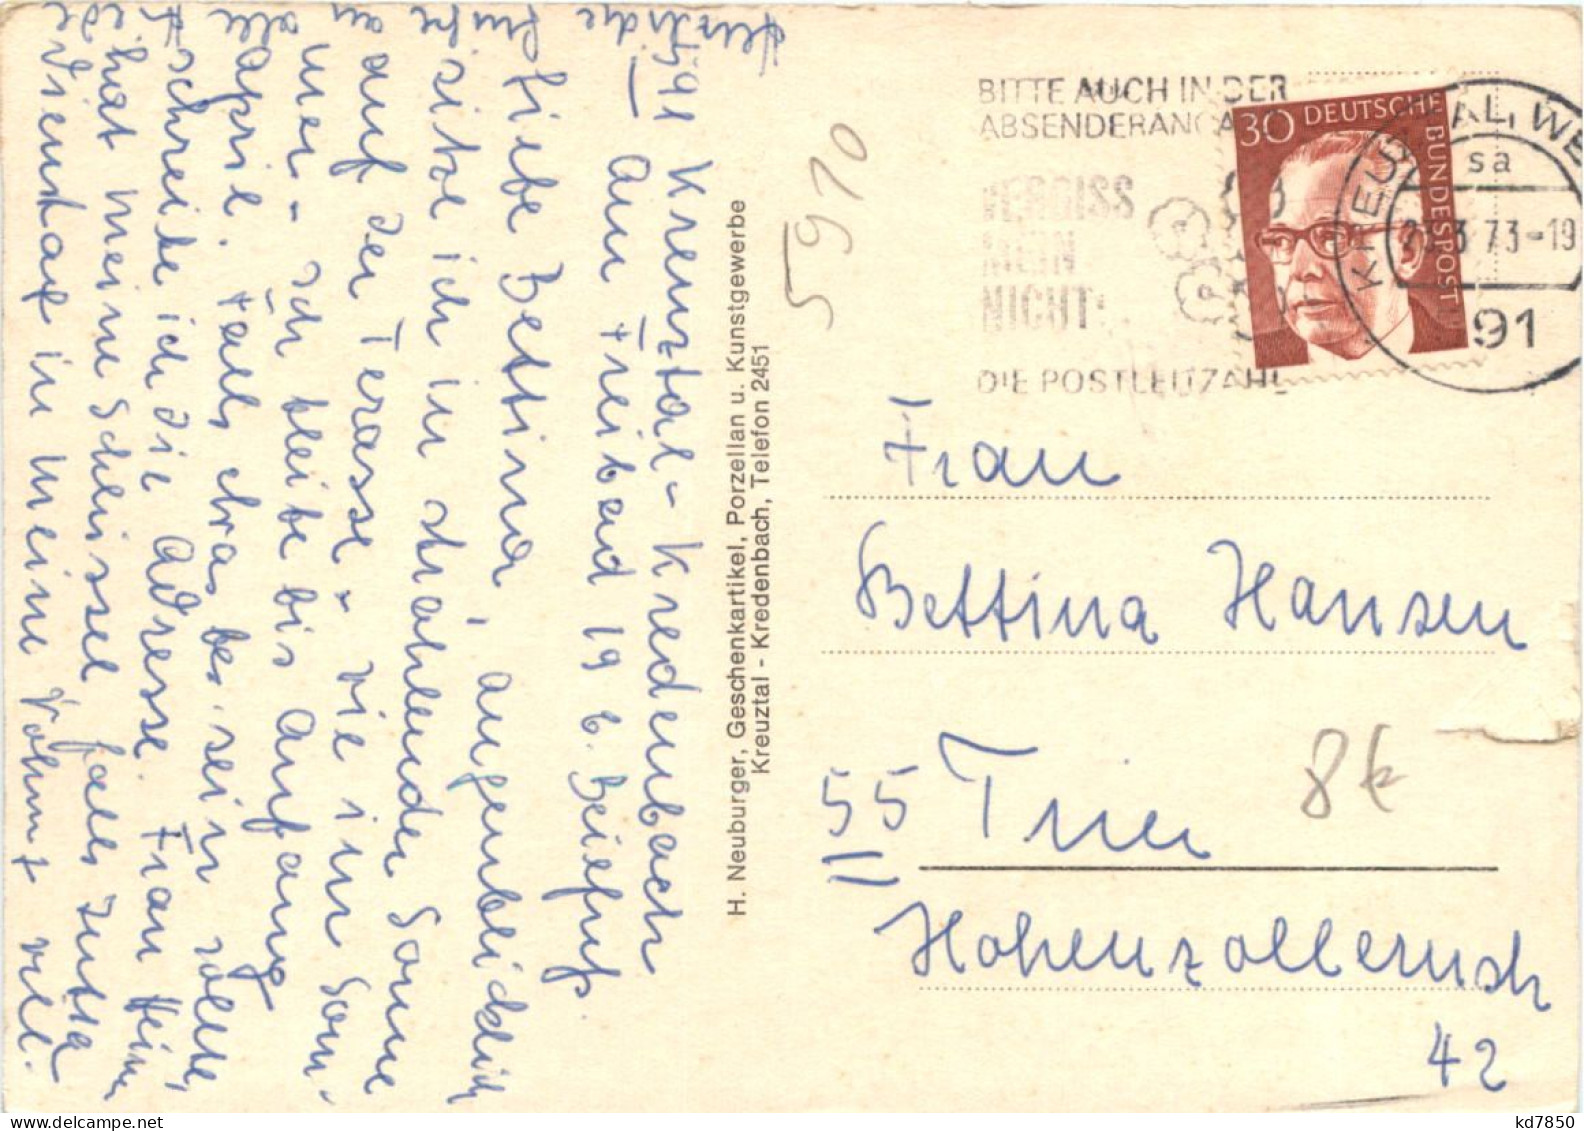 Herzliche Grüße an alle
5941 Kreuztal-Kredenbach
Am Freibad 19 b. Beifuß.
Liebe Bettina, augenblicklich
sitze ich in strahlender Sonne
auf der Terasse - wie im Som-
mer - ich bleibe bis Anfang
April. Falls etwas bes. sein sollte,
schreibe ich die Adresse. Frau Heim
hat meine Schlüssel falls Jutta
Dienstax in meine Wohnung will.
H. Neuburger, Geschenkartikel, Porzellan u. Kunstgewerbe
Kreuztal - Kredenbach, Telefon 2451
5910
BITTE AUCH IN DER
ABSENDERANGA
VERGISS
MEIN
NICHT
DIE POSTLEITZAHL
30 DEUTSCHE BUNDESPOST
KREUZTAL, WE
sa
3.73-19
591
Frau
Bettina Hansen
55 Trier
8€
Hohenzollernstr
42
kd7850